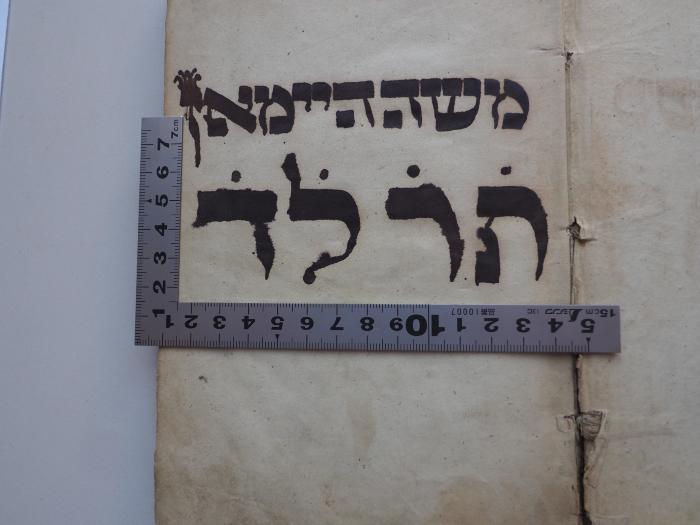 משה היימאן
תׄ רׄ לׄ דׄ
7cm
7 6 5 4 3 2 1
1 2 3 4 5 6 7 8 9 10 1 2 3 4 5
品番 10007
15cm